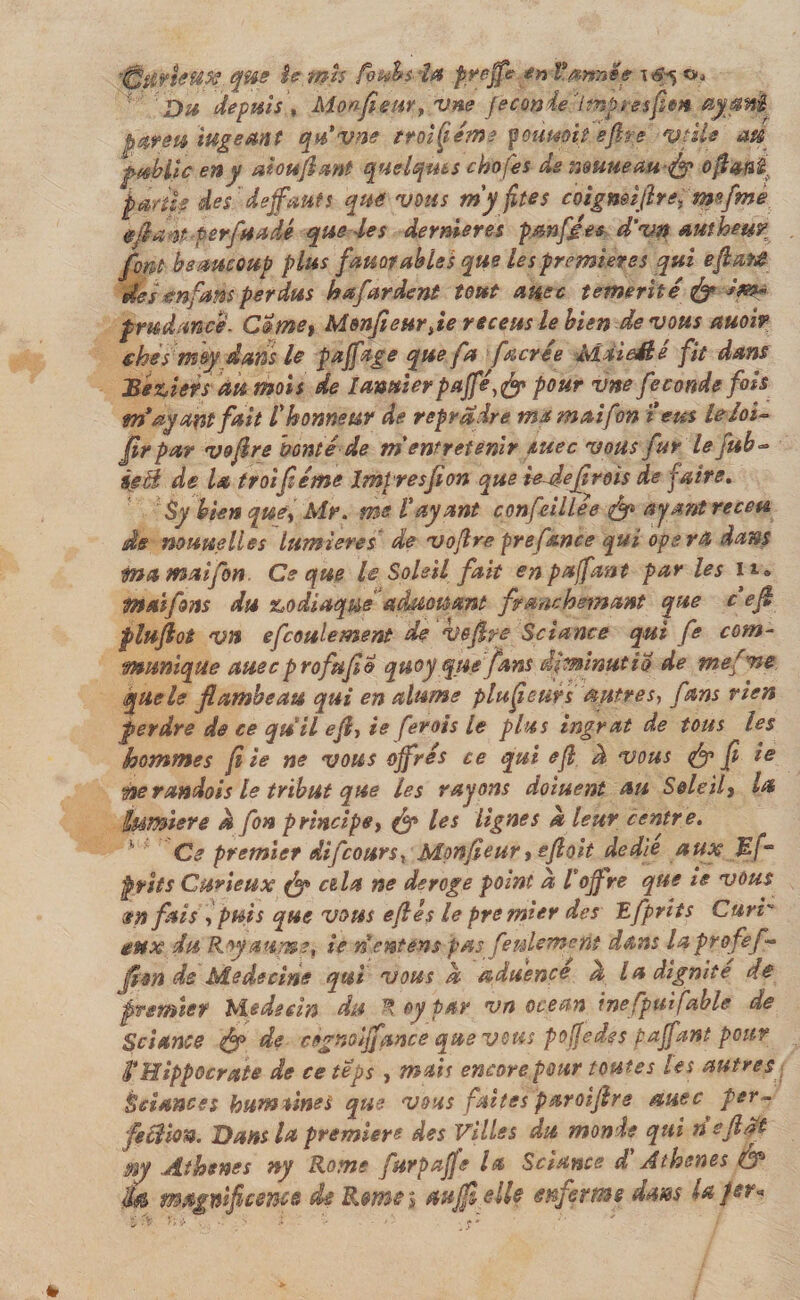 Curieux que ie mis ſoubs la preſſe en l'année 1650.
Du depuis, Monſieur, vne ſeconde impresſion ayant
pareu iugeant qu'vne troiſiéme pouuoit eſtre vtile au
public en y aiouſtant quelques choſes de nouueau & oſtant
partie des deffauts que vous m'y fites coignoiſtre, meſme
eſtant perſuadé que les dernieres panſées d'vn autheur
ſont beaucoup plus fauorables que les premieres qui eſtant
des enfans perdus haſardent tout auec temerité & im-
prudance. Cõme, Monſieur, ie receus le bien de vous auoir
chés moy dans le paſſage que ſa ſacrée Maieſté fit dans
Beziers au mois de Ianuier paſſé, & pour vne ſeconde fois
m'ayant fait l'honneur de reprãdre ma maiſon i'eus le loi-
ſir par voſtre bonté de m'entretenir auec vous ſur le ſub-
iect de la troiſiéme Impresſion que ie deſirois de faire.
Sy bien que, Mr. me l'ayant conſeillée & ayant receu
de nouuelles lumieres de voſtre preſance qui opera dans
ma maiſon. Ce que le Soleil fait en paſſant par les 12.
maiſons du zodiaque aduouant franchemant que c'eſt
pluſtot vn eſcoulement de voſtre Sciance qui ſe com-
munique auec profuſiõ quoy que ſans diminutiõ de meſme
que le flambeau qui en alume pluſieurs autres, ſans rien
perdre de ce qu'il eſt, ie ſerois le plus ingrat de tous les
hommes ſi ie ne vous offrés ce qui eſt à vous & ſi ie
ne randois le tribut que les rayons doiuent au Soleil, la
lumiere à ſon principe, & les lignes à leur centre.
Ce premier diſcours, Monſieur, eſtoit dedié aux Eſ-
prits Curieux & cela ne deroge point à l'offre que ie vous
en fais, puis que vous eſtés le premier des Eſprits Curi-
eux du Royaume, ie n'entens pas ſeulement dans la profeſ-
ſion de Medecine qui vous à aduencé à la dignité de
premier Medecin du Roy par vn ocean ineſpuiſable de
Sciance & de cognoiſſance que vous poſſedes paſſant pour
l'Hippocrate de ce tẽps, mais encore pour toutes les autres
Sciances humaines que vous faites paroiſtre auec per-
fection. Dans la premiere des Villes du monde qui n'eſtãt
ny Athenes ny Rome ſurpaſſe la Sciance d'Athenes &
la magnificence de Rome; auſſi elle enferme dans la per-